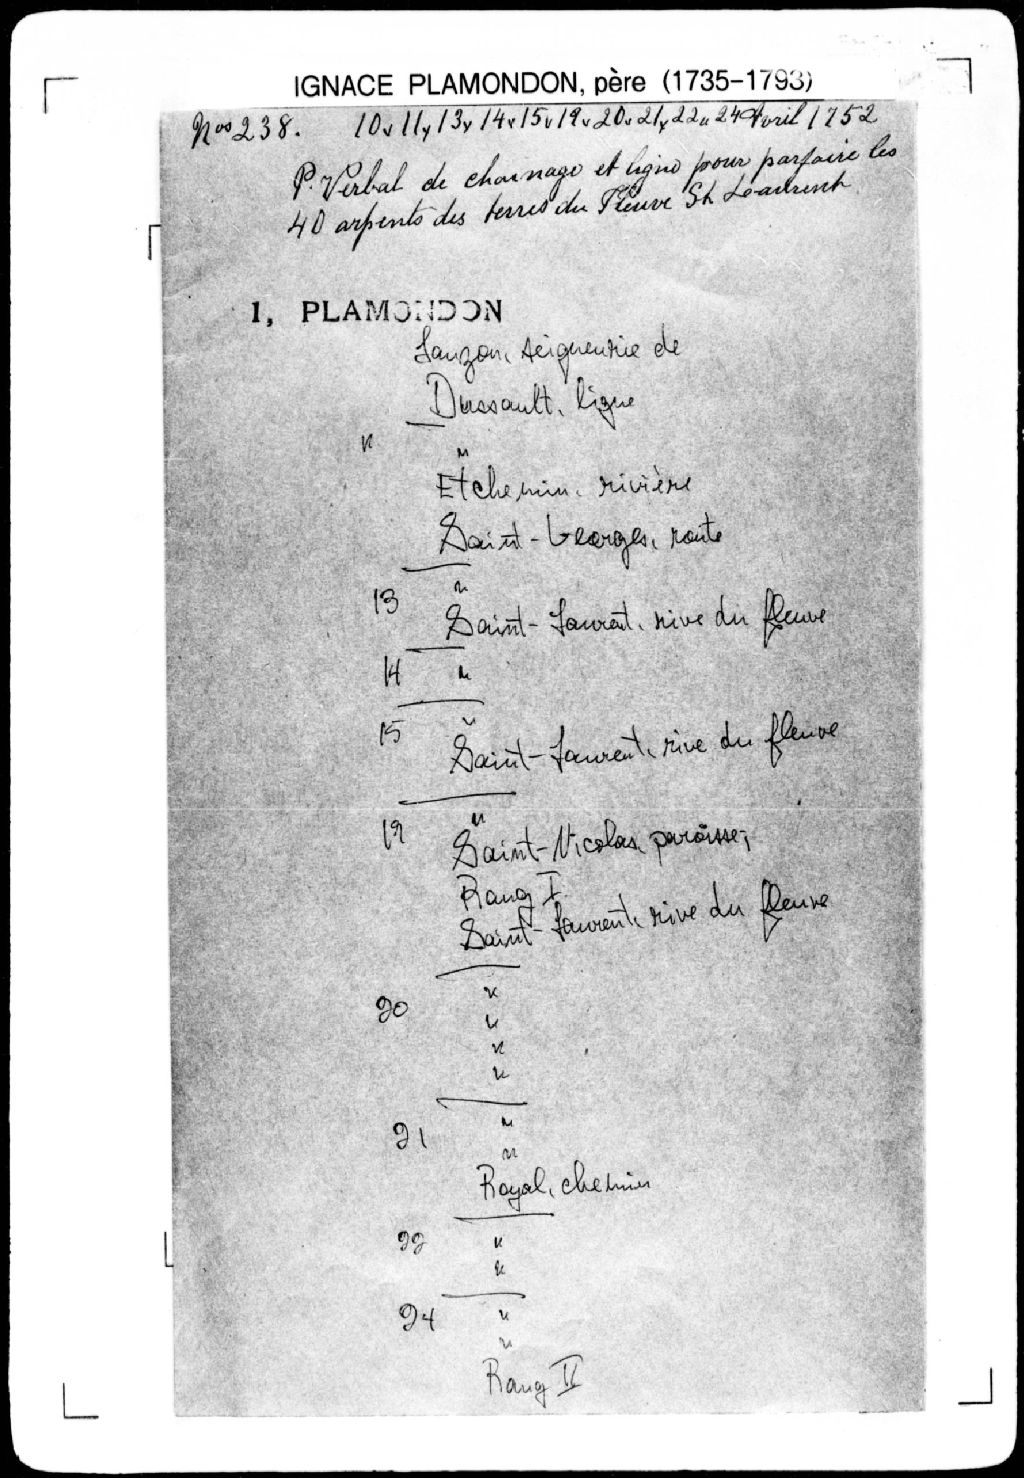 IGNACE PLAMONDON, père (1735-1793)
Nos 238. 10, 11, 13, 14, 15, 19, 20, 21, 22, 24 Avril 1752
P. Verbal de chainage et ligne pour parfaire les
40 arpents des terres du Fleuve St Laurent
I, PLAMONDON
Lauzon, seigneurie de
Dussault, ligne
" "
Etchemin, rivière
Saint-Georges, route
13 "
Saint-Laurent, rive du fleuve
14 "
15 "
Saint-Laurent, rive du fleuve
19 "
Saint-Nicolas, paroisse;
Rang I
Saint-Laurent, rive du fleuve
20 "
"
"
"
21 "
"
Royal, chemin
22 "
"
24 "
"
Rang II